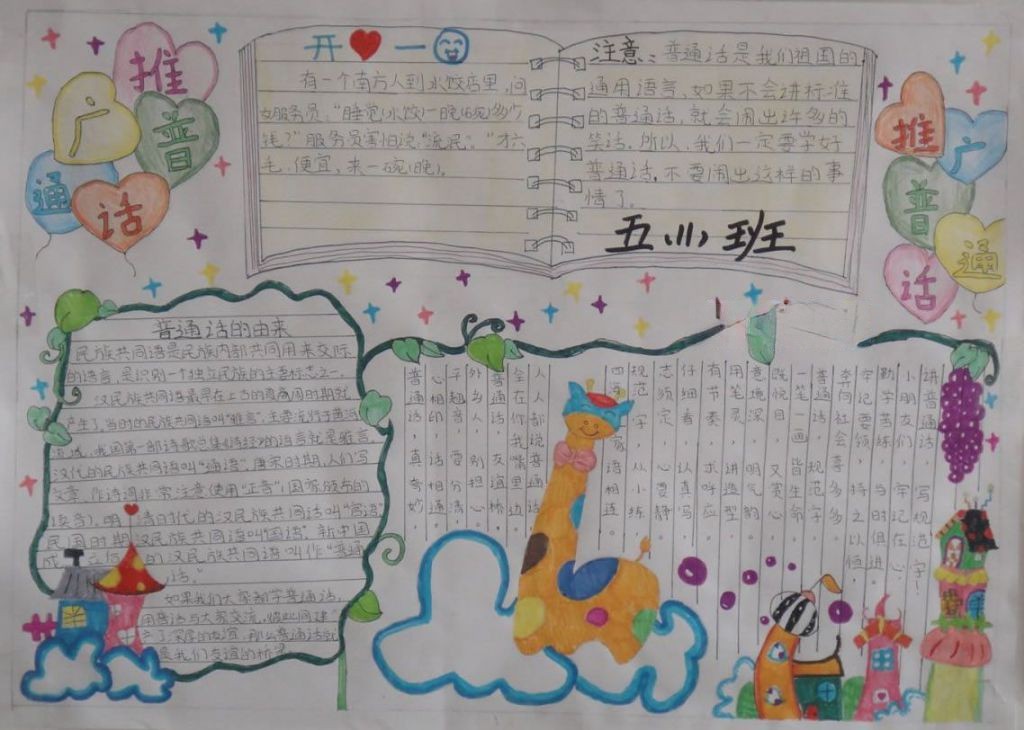 推
广
普
通
话
开一
有一个南方人到水饺店里,问
女服务员:"睡觉(水饺)一晚(碗)多少
钱?"服务员害怕说:"流氓。""才六
毛,便宜,来一碗(晚)。
注意:普通话是我们祖国的
通用语言,如果不会讲标准
的普通话,就会闹出许多的
笑话,所以,我们一定要学好
普通话,不要闹出这样的事
情了。
五、(1)班
推
广
普
通
话
普通话的由来
民族共同语是民族内部共同用来交际
的语言,是识别一个独立民族的主要标志之一。
汉民族共同语最早在上古的夏商周时期就
产生了,当时的民族共同语叫"雅言",主要流行于黄河
流域,我国第一部诗歌总集《诗经》的语言就是雅言。
汉代的民族共同语叫"通语",唐宋时期,人们写
文章、作诗词非常注意使用"正音"(国家颁布的
读音),明、清时代的汉民族共同语叫"官话",
民国时期汉民族共同语叫"国语",新中国
的汉民族共同语叫作"普通
话。"
如果我们大家都学普通话,
用普通话与大家交流,
了深厚的友谊,那么普通话就
是我们友谊的桥梁
讲普通话,写规范字!
小朋友们,牢记在心。
勤学苦练,与时俱进。
牢记要领,持之以恒。
奔向社会喜多多。
普通话,规范字,
一笔一画皆生命。
既悦目,又赏心,
意境深,明气
用笔灵,讲造型,
有节奏,求呼应。
仔细看,认真写,
志须定,心要静。
规范字,从小练,
四海 家语相连。
人人都说普通话,
全在你我嘴里边。
普通话,友谊桥,
外乡人,别担心,
平翘音,要分清。
心相印,话相通,
普通话,真奇妙。